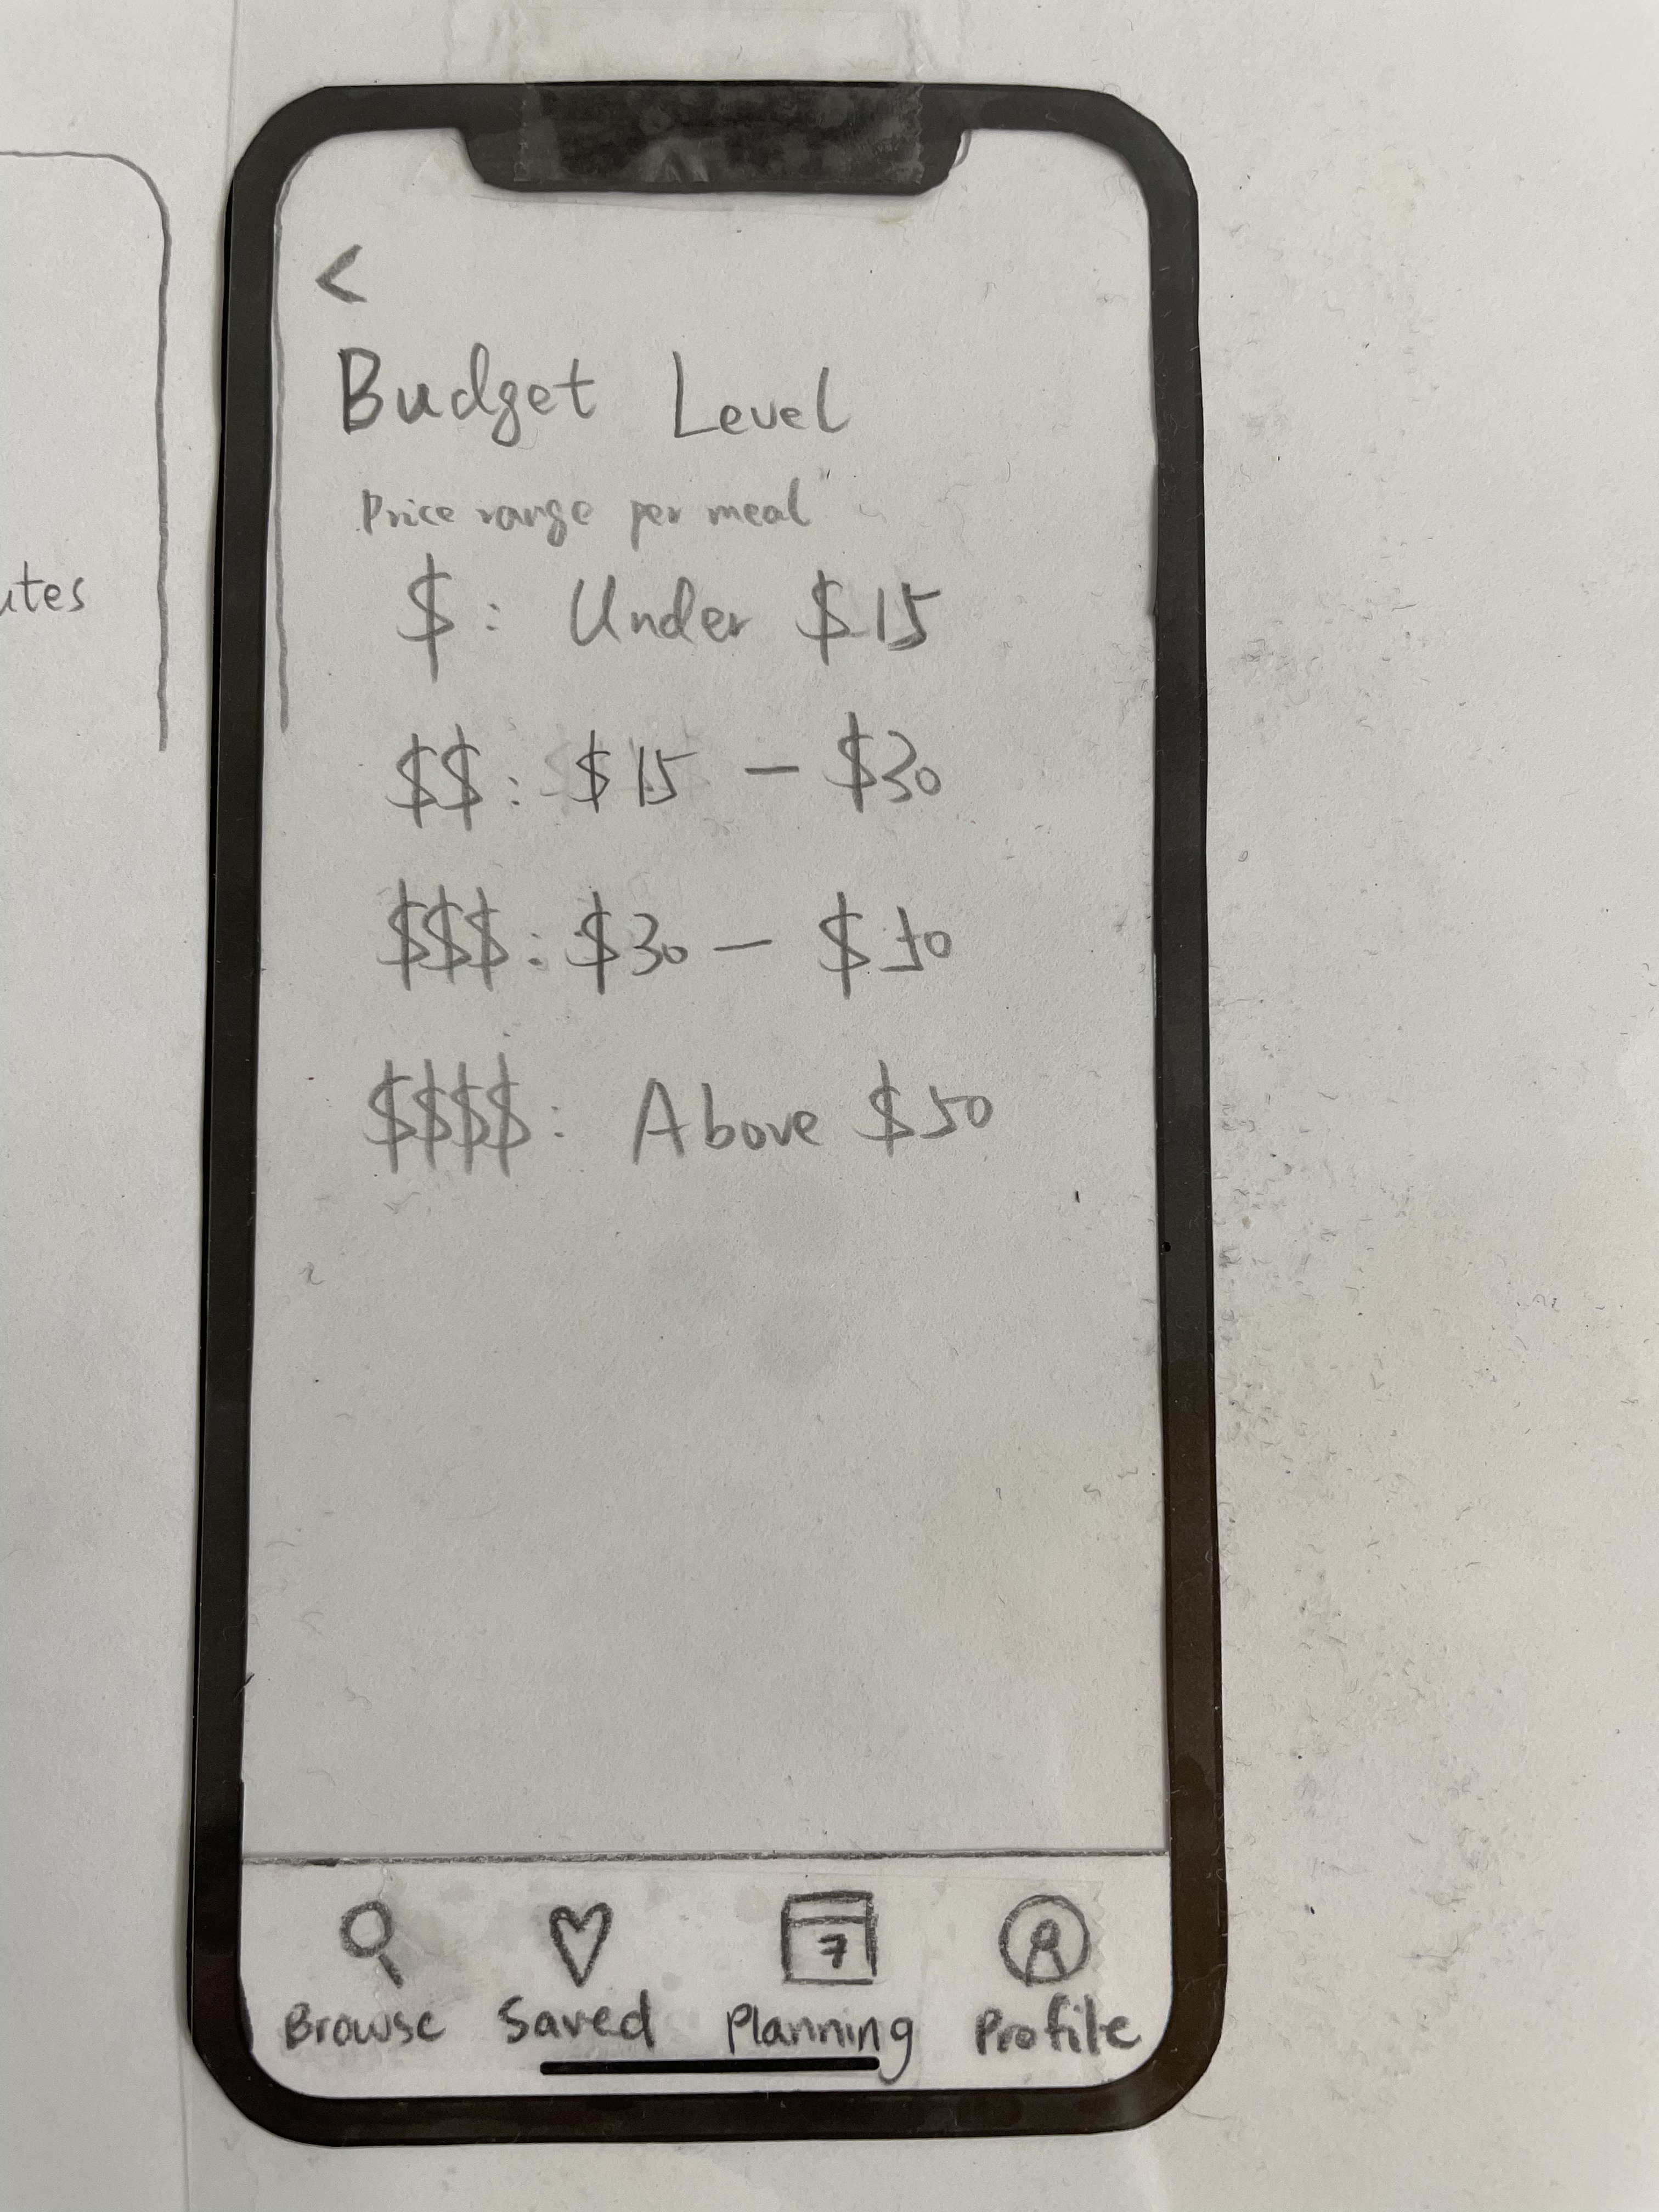 <
Budget Level
Price range per meal
$: Under $15
$$: $15 - $30
$$$: $30 - $50
$$$$: Above $50
utes
7
Browse Saved Planning Profile